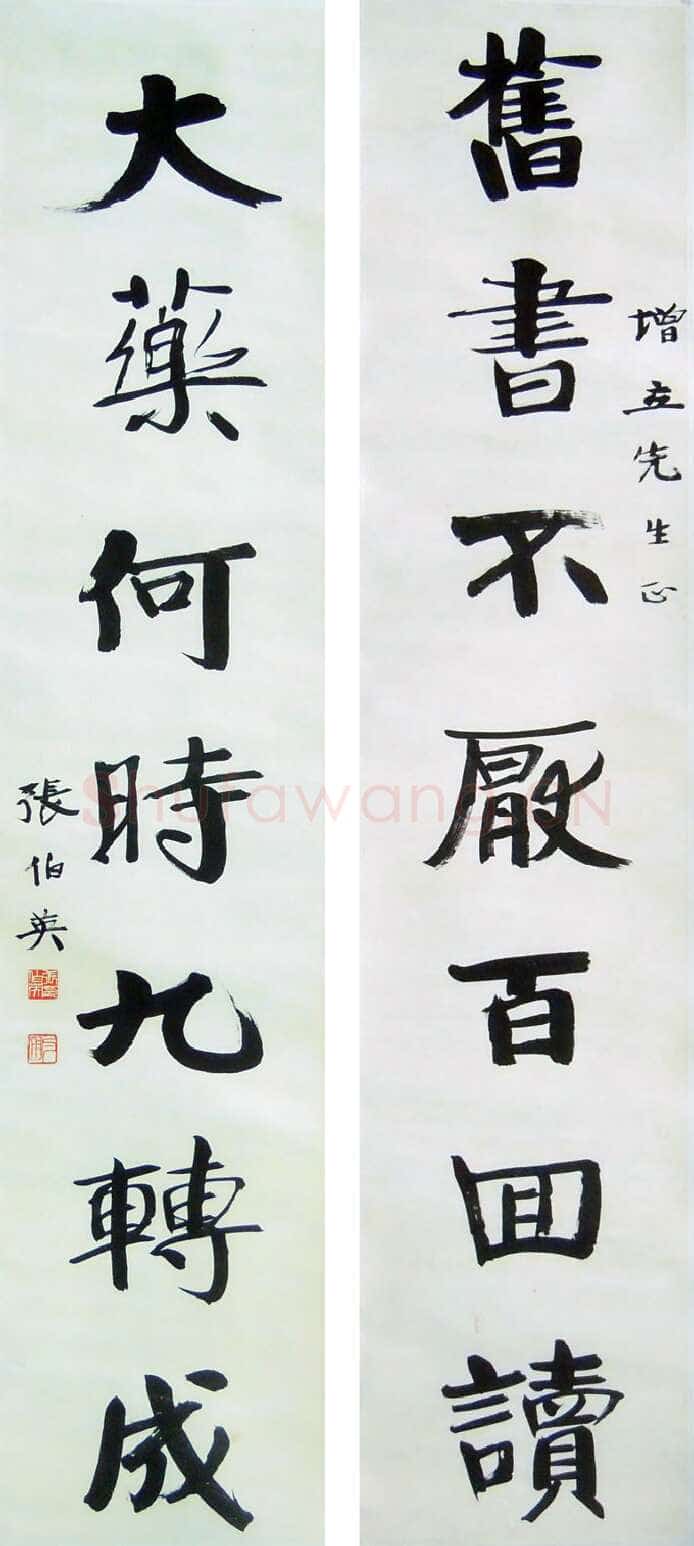 增立先生正
舊書不厭百回讀
大藥何時九轉成
張伯英
Shufawang.CN